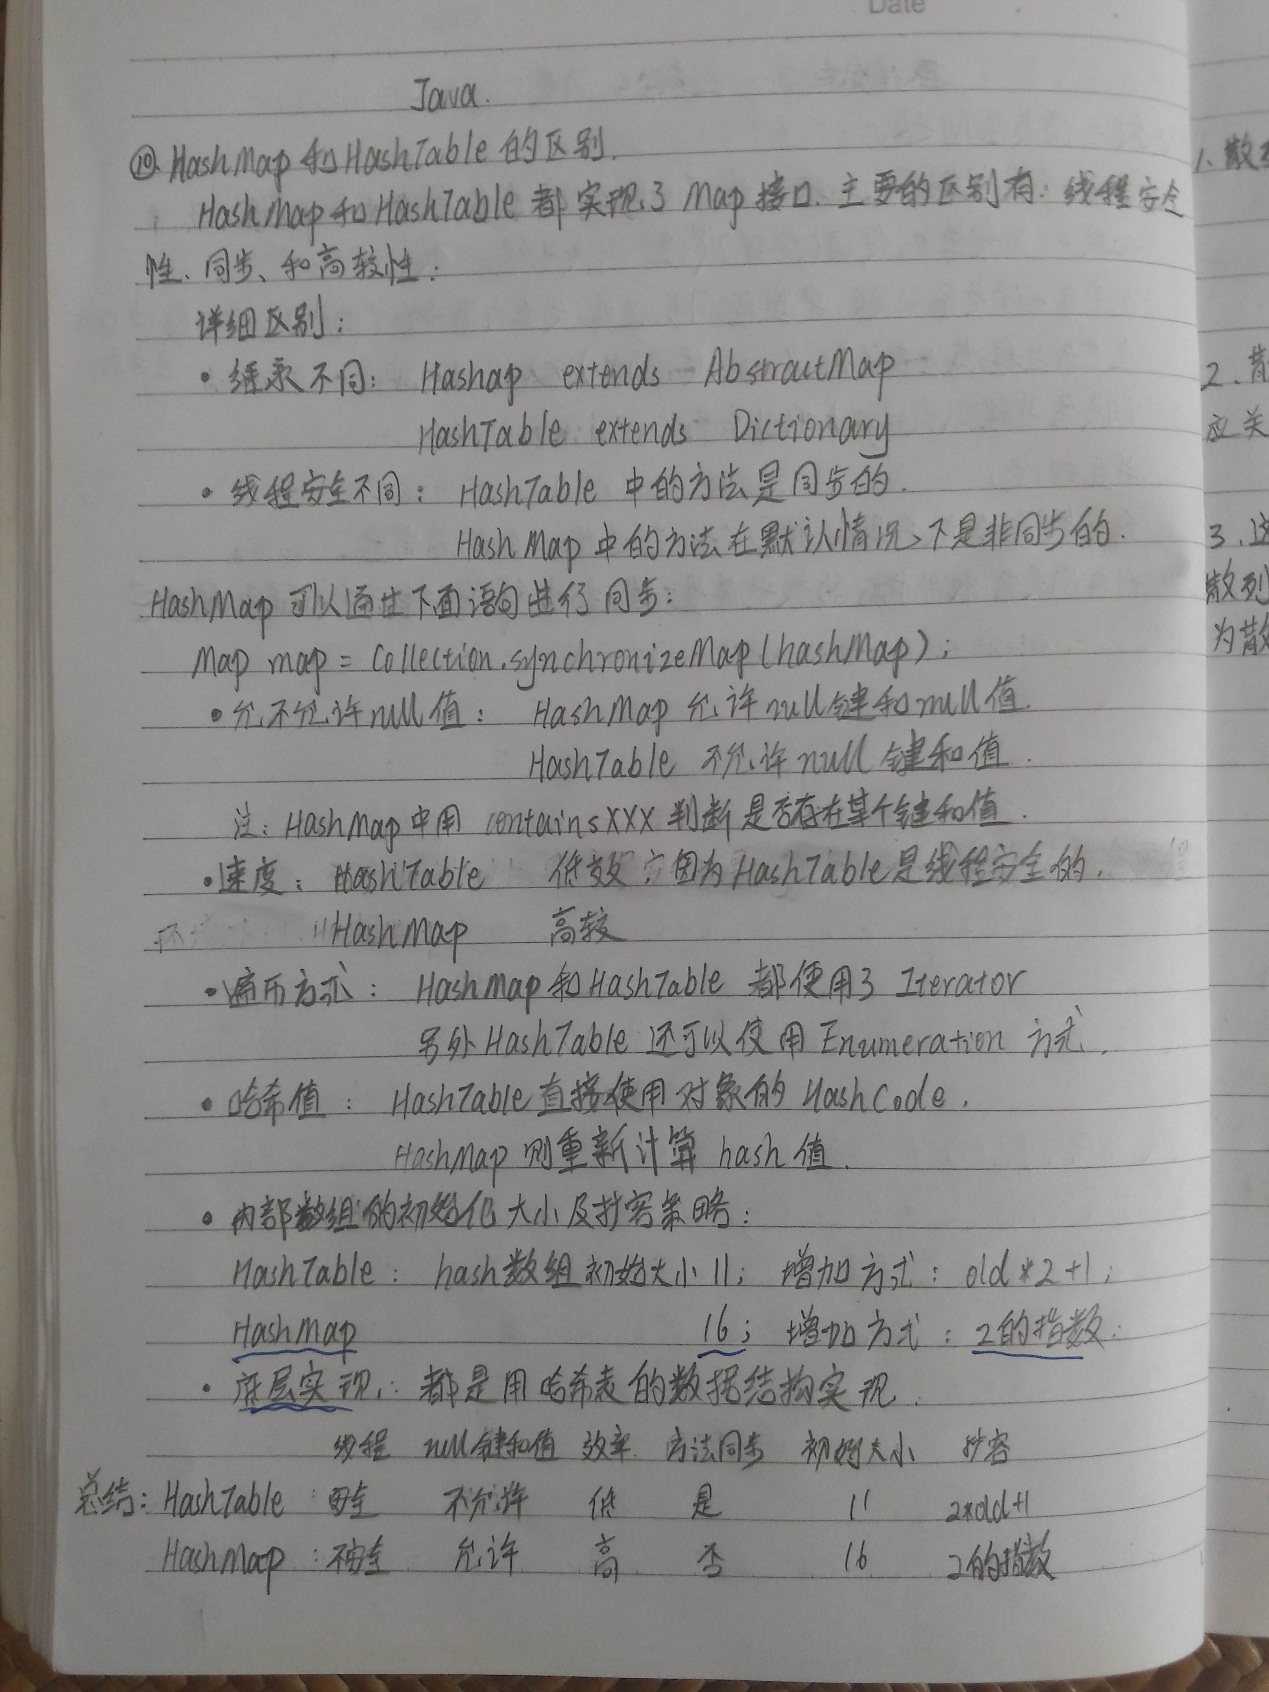 Date
Java.
⑩ HashMap和HashTable的区别.
HashMap和HashTable都实现了Map接口.主要的区别有:线程安全
性、同步、和高较性:
详细区别:
• 继承不同: Hashap extends AbstractMap
HashTable extends Dictionary
• 线程安全不同: HashTable 中的方法是同步的.
HashMap中的方法在默认情况下是非同步的.
HashMap可以通过下面语句进行同步:
Map map = Collection.synchronizeMap(hashMap);
• 允不允许null值: HashMap 允许null键和null值.
HashTable 不允许null键和值.
注: HashMap中用 containsXXX 判断是否存在某个键和值.
• 速度: HashTable 低效;因为HashTable是线程安全的.
HashMap 高较
• 遍布方式: HashMap和HashTable 都使用了 Iterator
另外HashTable还可以使用Enumeration方式.
• 哈希值: HashTable直接使用对象的HashCode.
HashMap则重新计算hash值.
• 内部数组的初始化大小及扩容策略:
HashTable: hash数组初始大小11; 增加方式: old*2+1;
HashMap 16; 增加方式: 2的指数.
• 底层实现: 都是用哈希表的数据结构实现.
线程 null键和值 效率 方法同步 初始大小 扩容
总结: HashTable: 安全 不允许 低 是 11 2*old+1
HashMap: 不安全 允许 高 否 16 2的指数
1、散
2、
应关
3、这
散列
为散